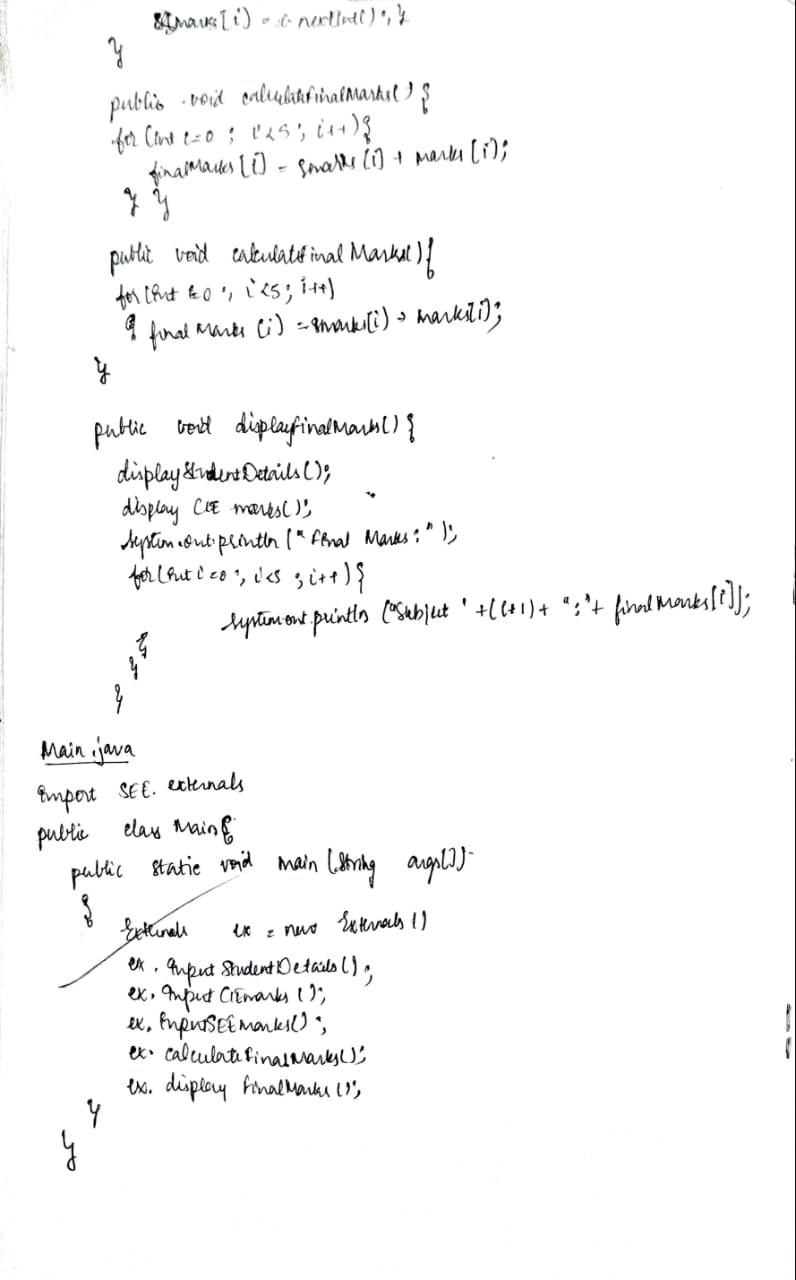 smarks[i] = s.nextInt(); }
}
public void calculateFinalMarks() {
for (int i=0 ; i<5 ; i++){
finalMarks[i] = smarks[i] + marks[i];
} }
public void calculateFinalMarks(){
for (int i=0 ; i<5 ; i++)
{ final Marks (i) = smarks[i) + marks[i];
}
public void displayfinalMarks() {
displayStudentDetails();
display CIE marks();
System.out.println (" Final Marks : " );
for(int i=0 ; i<5 ; i++) {
System.out.println ("Subject ' +((i+1) + " : "+ finalMarks[i]);
}
}
}
Main.java
import SEE. externals
public class Main{
public static void main (String args[])
{
Externals ex = new Externals ()
ex. Input StudentDetails();
ex. Input CIEmarks ();
ex. InputSEEmarks();
ex. calculate finalMarks();
ex. display finalMarks ();
}
}